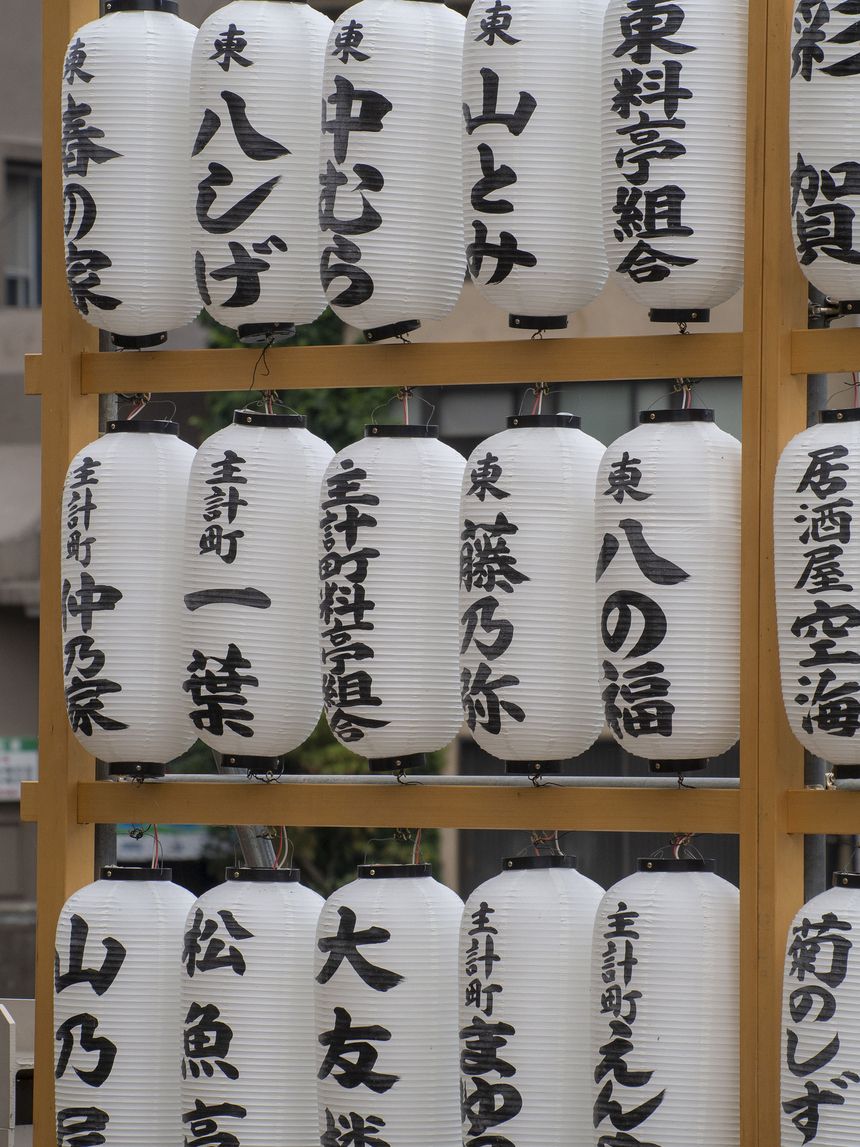 東 春の家
東 八しげ
東 中むら
東 山とみ
東料亭組合
賀
主計町 仲乃家
主計町 一葉
主計町料亭組合
東 藤乃弥
東 八の福
居酒屋 空海
山乃
松魚亭
大友楼
主計町 まゆ
主計町 えん
菊のしず